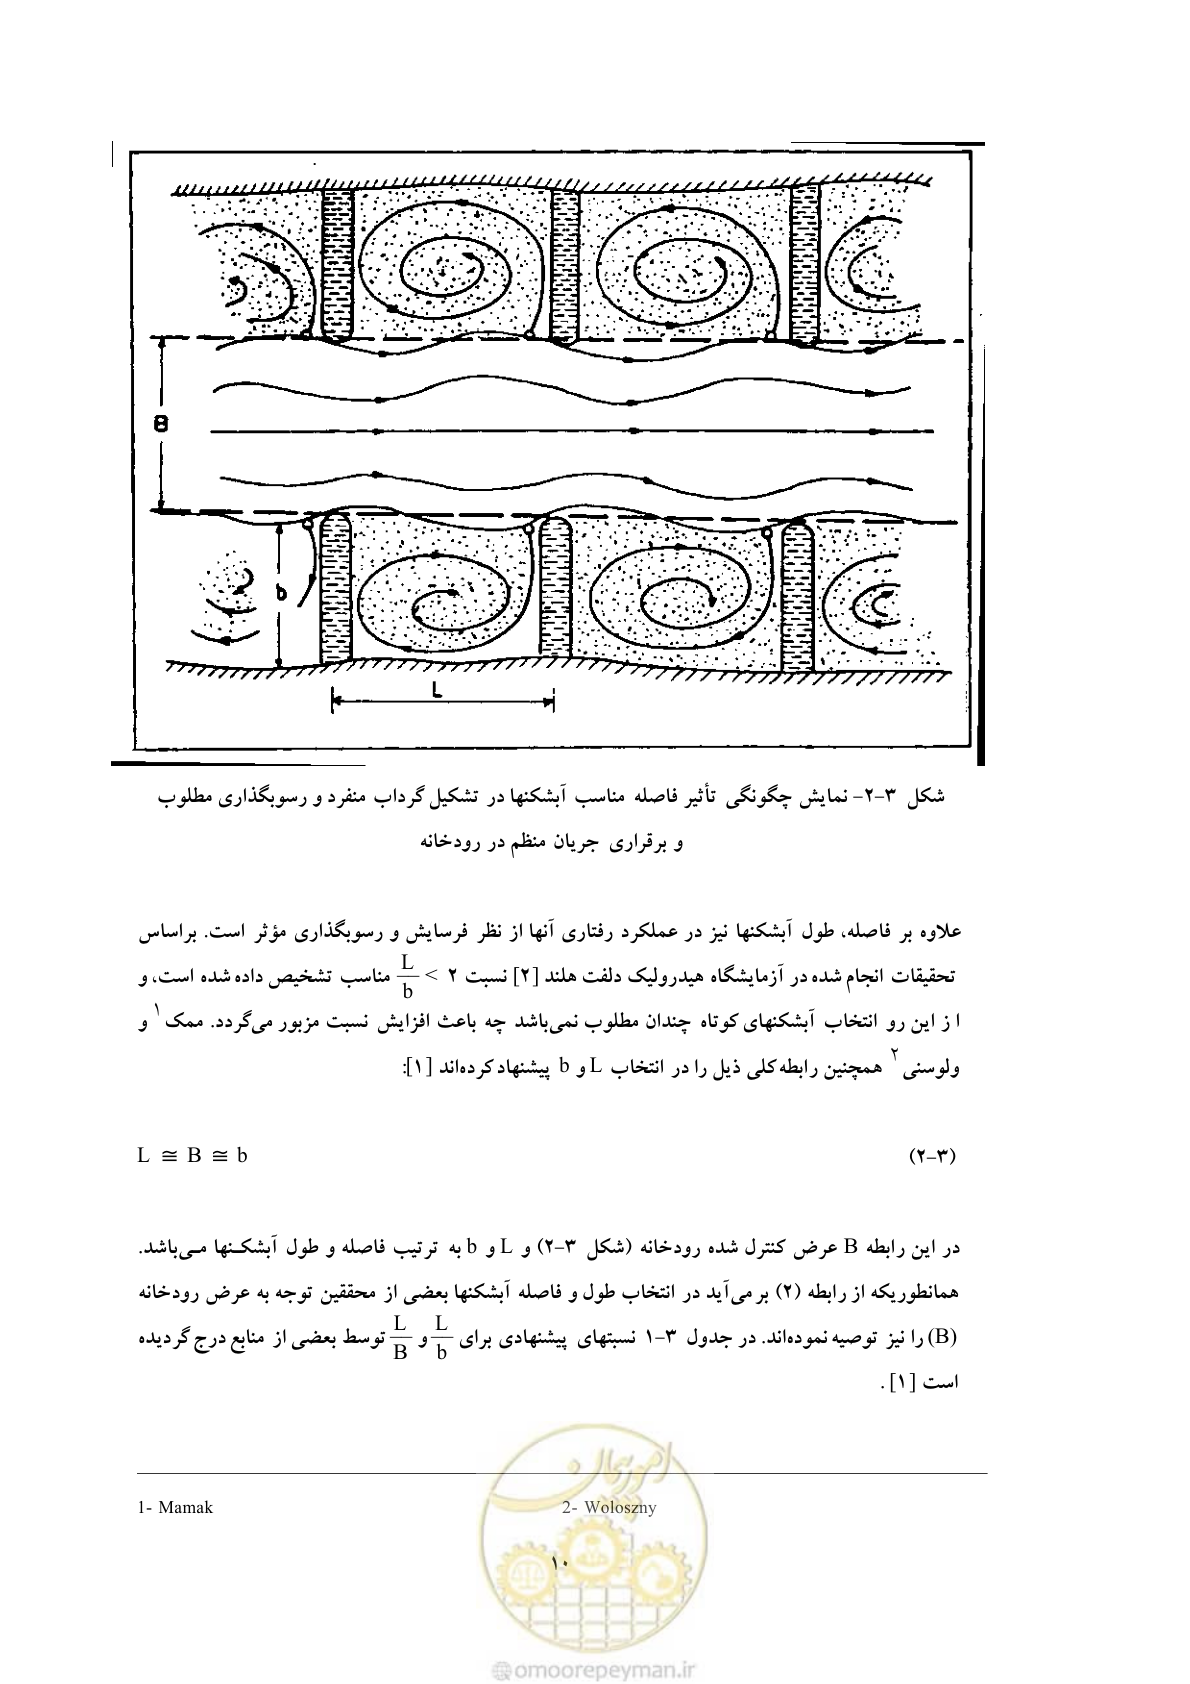 B
b
L
شکل ۳-۲- نمایش چگونگی تأثیر فاصله مناسب آبشکنها در تشکیل گرداب منفرد و رسوبگذاری مطلوب
و برقراری جریان منظم در رودخانه
علاوه بر فاصله، طول آبشکنها نیز در عملکرد رفتاری آنها از نظر فرسایش و رسوبگذاری مؤثر است. براساس
تحقیقات انجام شده در آزمایشگاه هیدرولیک دلفت هلند [۲] نسبت ۲ > L/b مناسب تشخیص داده شده است، و
ا ز این رو انتخاب آبشکنهای کوتاه چندان مطلوب نمی‌باشد چه باعث افزایش نسبت مزبور می‌گردد. ممک۱ و
ولوسنی۲ همچنین رابطه کلی ذیل را در انتخاب L و b پیشنهاد کرده‌اند [۱]:
L ≅ B ≅ b (۳-۲)
در این رابطه B عرض کنترل شده رودخانه (شکل ۳-۲) و L و b به ترتیب فاصله و طول آبشکـنها مـی‌باشد.
همانطوریکه از رابطه (۲) بر می‌آید در انتخاب طول و فاصله آبشکنها بعضی از محققین توجه به عرض رودخانه
(B) را نیز توصیه نموده‌اند. در جدول ۳-۱ نسبتهای پیشنهادی برای L/b و L/B توسط بعضی از منابع درج گردیده
است [۱] .
1- Mamak 2- Woloszny
امور پیمان
۱۰
@omoorepeyman.ir